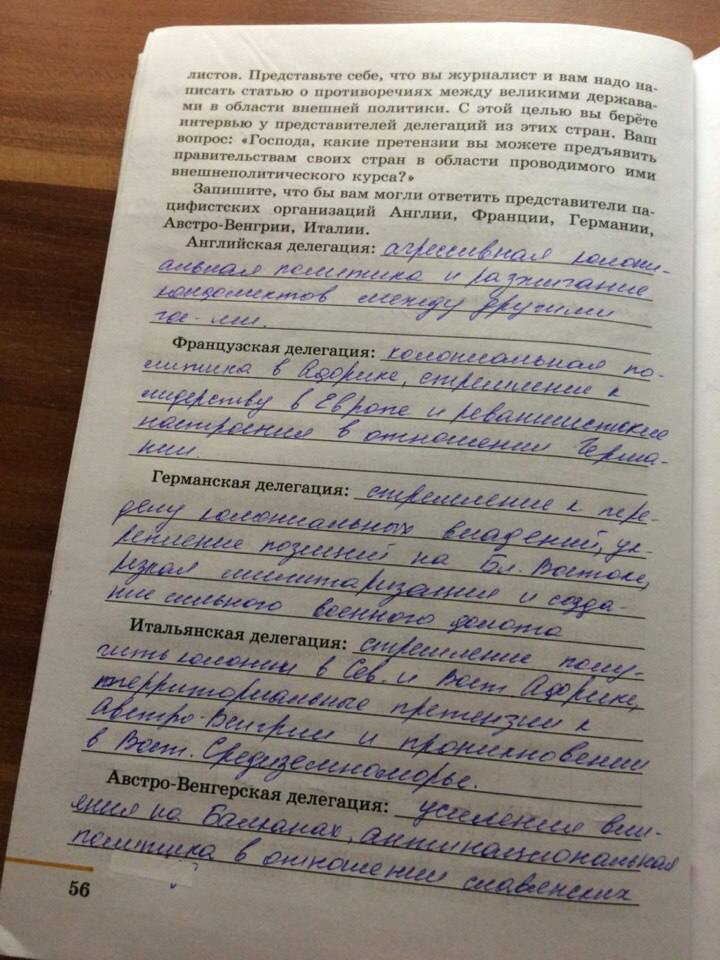 листов. Представьте себе, что вы журналист и вам надо на-
писать статью о противоречиях между великими держава-
ми в области внешней политики. С этой целью вы берёте
интервью у представителей делегаций из этих стран. Ваш
вопрос: «Господа, какие претензии вы можете предъявить
правительствам своих стран в области проводимого ими
внешнеполитического курса?»
Запишите, что бы вам могли ответить представители па-
цифистских организаций Англии, Франции, Германии,
Австро-Венгрии, Италии.
Английская делегация: агрессивная колони-
альная политика и разжигание
конфликтов между другими
гос-ми.
Французская делегация: колониальная по-
литика в Африке, стремление к
лидерству в Европе и реваншистские
настроения в отношении Герма-
нии.
Германская делегация: стремление к пере-
делу колониальных владений, ук-
репление позиций на Бл. Востоке,
резкая милитаризация и созда-
ние сильного военного флота
Итальянская делегация: стремление полу-
чить колонии в Сев. и Вост. Африке,
территориальные претензии к
Австро-Венгрии и проникновении
в Вост. Средиземноморье.
Австро-Венгерская делегация: усиления вли-
яния на Балканах, антинациональная
политика в отношении славянских
56